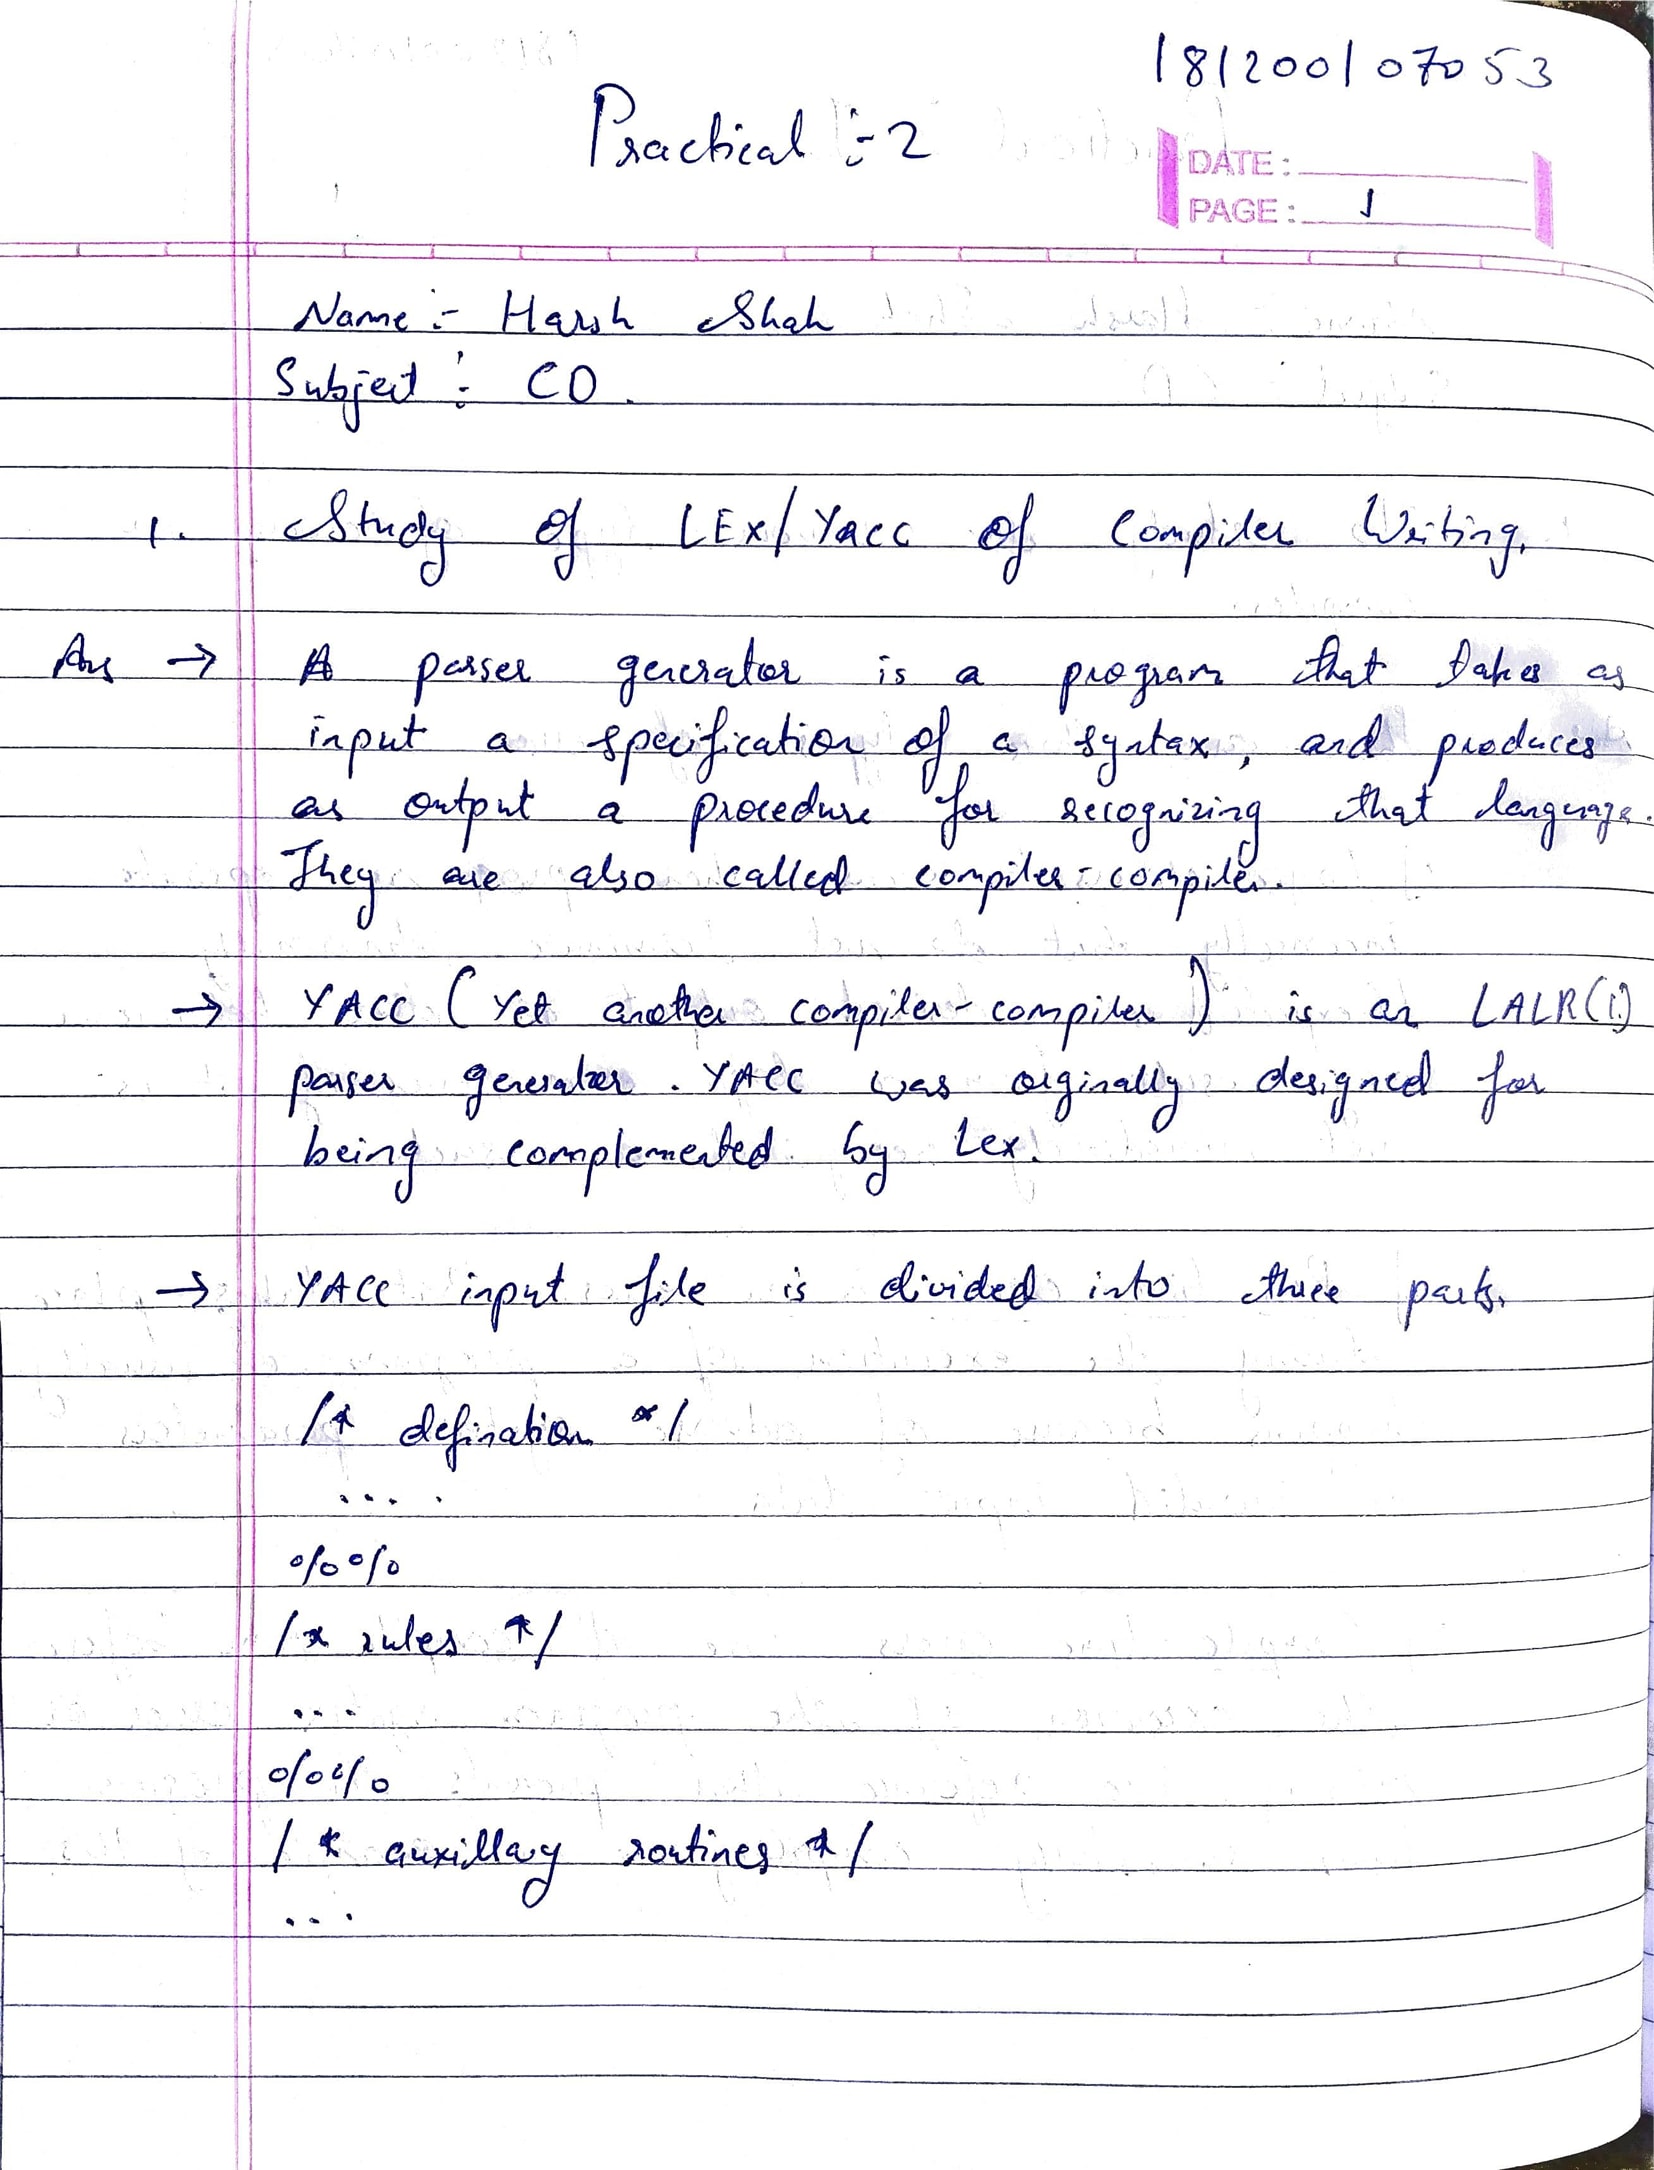 18/200107053
Practical :- 2
DATE :
PAGE : 1
Name :- Harsh Shah
Subject :- CD.
1. Study of LEx/Yacc of Compiler Writing.
Ans → A parser generator is a program that takes as
input a specification of a syntax, and produces
as output a procedure for recognizing that language.
They are also called compiler-compiler.
→ YACC (Yet another compiler-compiler) is an LALR(1)
parser generator. YACC was orginally designed for
being complemented by Lex.
→ YACC input file is divided into three parts.
/* defination */
....
%%
/* rules */
...
%%
/* auxillary routines */
...